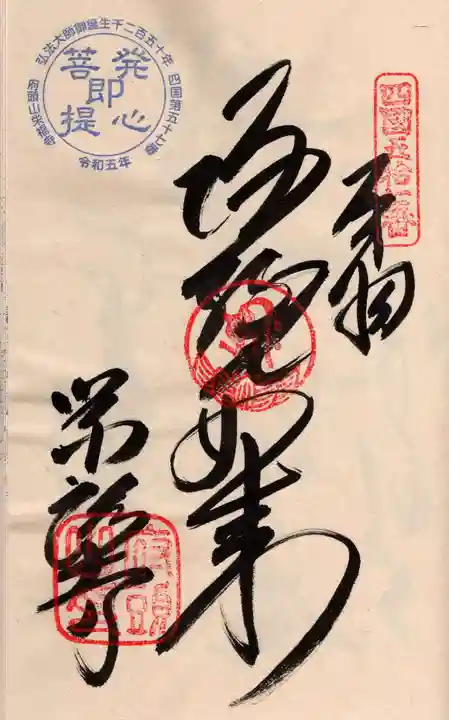 四國五拾七番
奉納
阿弥陀如来
栄福寺
弘法大師御誕生千二百五十年
四国第五十七番
府頭山栄福寺
令和五年
発心
即
菩提